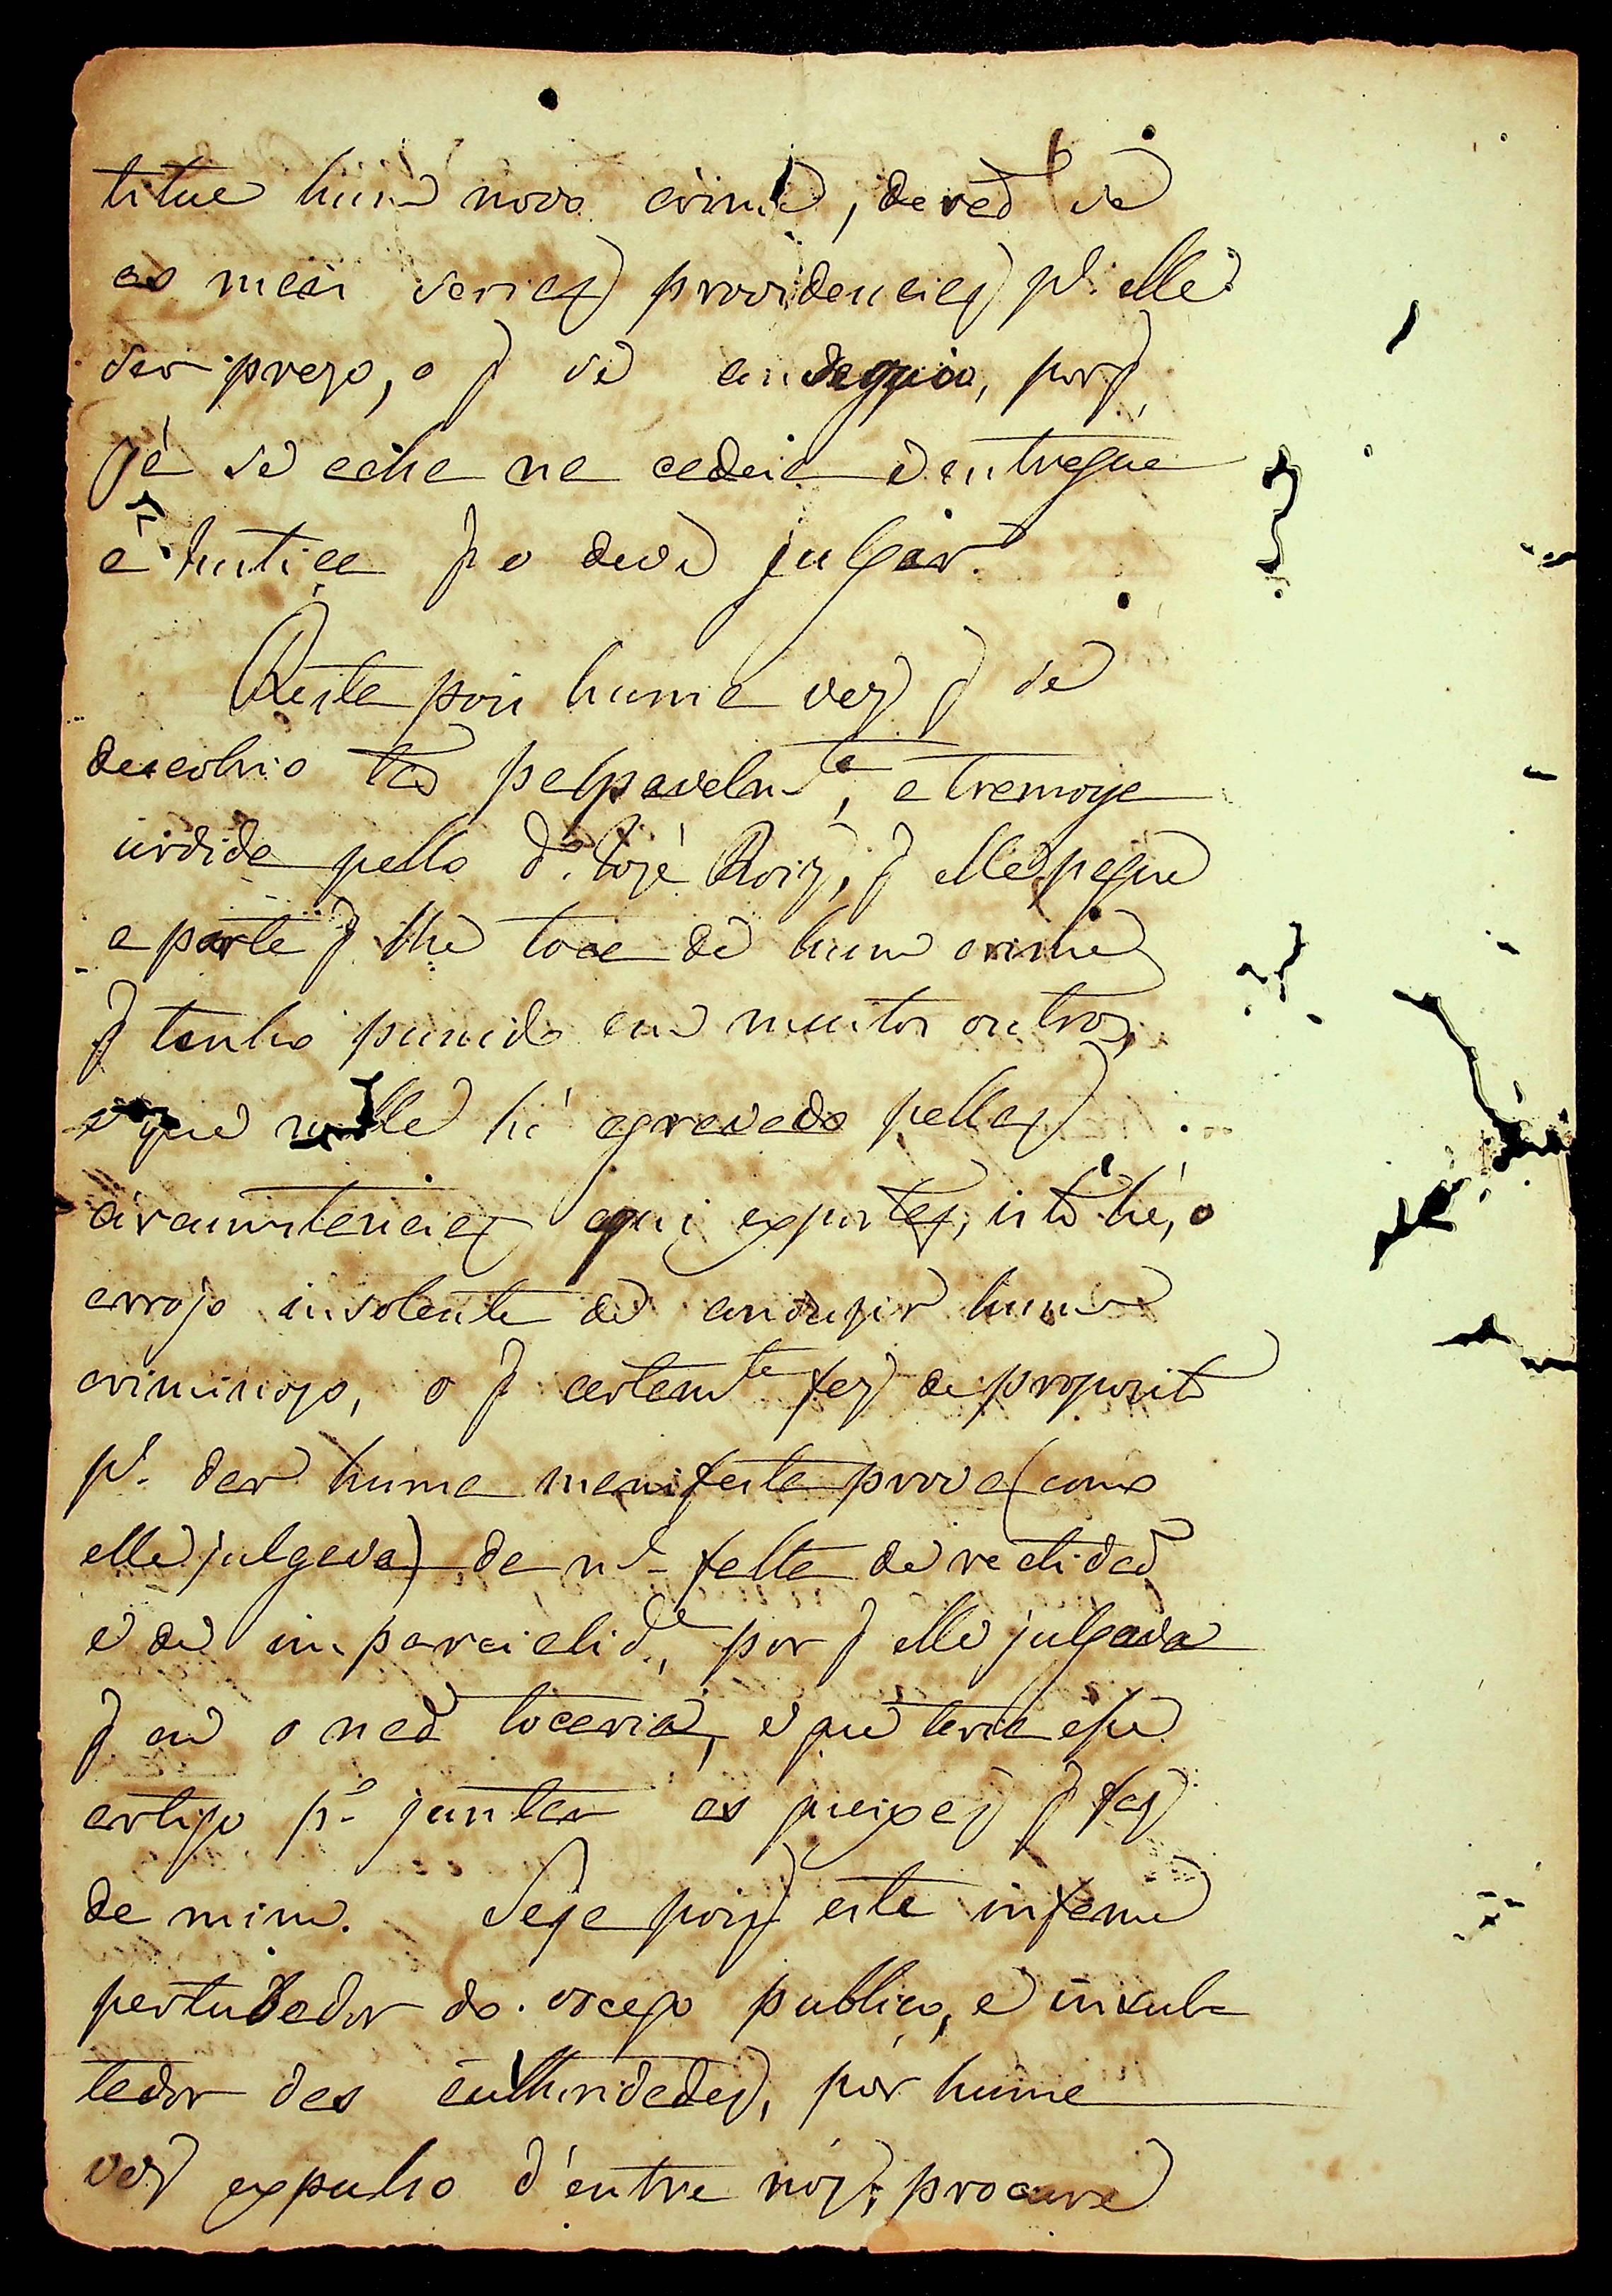 titue hum novo crime, derão se
as mais serias providencias pª elle
ser prezo, o q̃ se conseguio, porq̃
já se acha na cadeia e entregue
á Justiça q̃ o deve julgar.
Resta pois huma vez q̃ se
descobrio tão palpavelmte, a tramoya
urdida pello dº José Roiz, q̃ elle pague
a parte q̃ lhe toca de hum crime
q̃ tenho punido em muitos outros,
e que nelle hé agravado pellas
circunstancias aqui expostas, isto hé, o
arrojo insolente de conduzir hum
criminozo, o q̃ certamte fez de proposito
pª dar huma manifesta prova (como
elle julgava) da mª falta de rectidaõ
e de imparcialide, por q̃ elle julgava
q̃ eu o naõ tocaria, e que teria esse
artigo pª juntar as queixas q̃ faz
de mim. Seja pois este infame
pertubador do socego publico, e insul-
tador das authoridades, por huma
vez expulso d'entre nós; procure